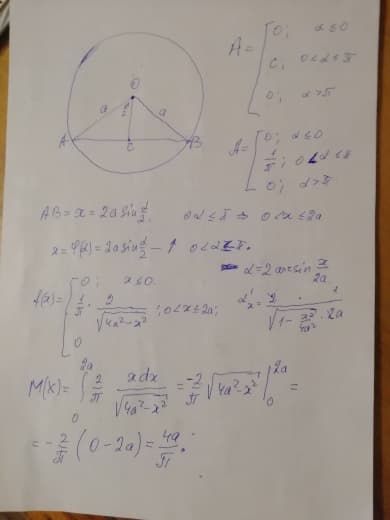 O
a
α/2
a
A
C
B
A = { 0; α ≤ 0
C, 0 < α ≤ π
0; α > π
A = { 0; α ≤ 0
1/π; 0 < α ≤ π
0; α > π
AB = x = 2a sin α/2; 0 α ≤ π ⇒ 0 < x ≤ 2a
x = φ(α) = 2a sin α/2 — ↑ 0 < α ≤ π.
α = 2 arcsin x/2a
f(x) = { 0; x ≤ 0
1/π · 2/√(4a² − x²); 0 < x ≤ 2a;
0
α'ₓ = 2 · 1/(√(1 − x²/4a²) · 2a)
M(X) = ∫₀²ᵃ 2/π xdx/√(4a² − x²) = −2/π √(4a² − x²) |₀²ᵃ =
= −2/π (0 − 2a) = 4a/π.